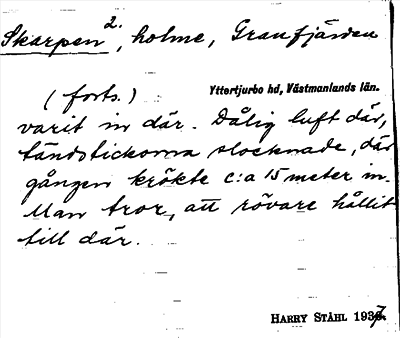 Skarpen 2., holme, Granfjärden
Yttertjurbo hd, Västmanlands län.
(forts.)
varit in där. Dålig luft där,
tändstickorna slocknade, där
gången krökte c:a 15 meter in.
Man tror, att rövare hållit
till där.
HARRY STÅHL 1937.